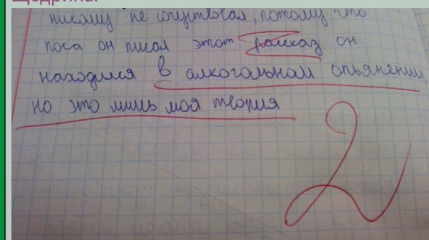 Щедрина.
никому не сочувствовал, потому что
пока он писал этот рассказ он
находился в алкогольном опьянении,
но это лишь моя теория
2